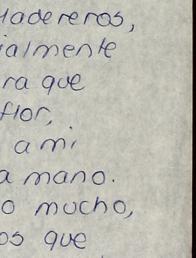 ladereros,
ialmente
ra que
flor,
a mi
a mano.
o mucho,
os que